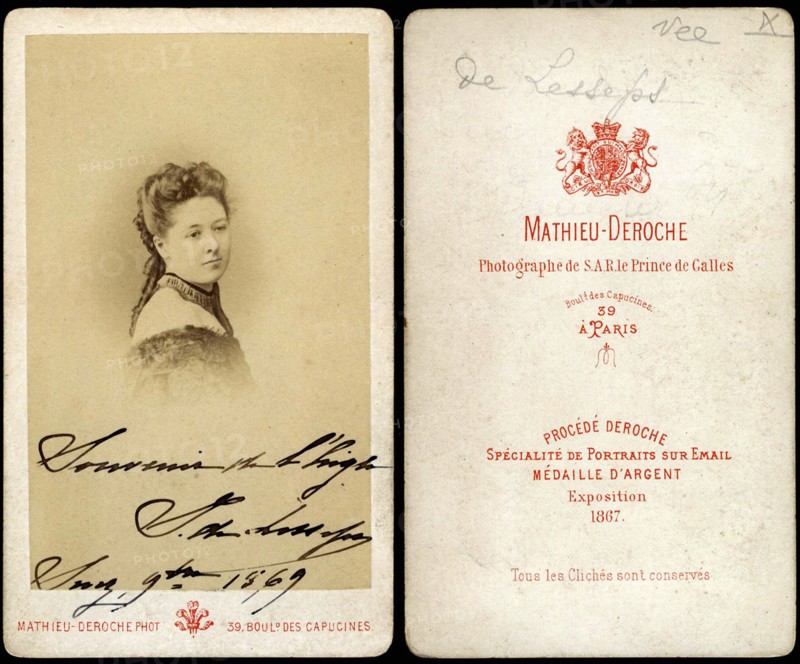 Souvenir de l'Aigle
S. de Lesseps
Suez, 9bre 1869
MATHIEU-DEROCHE PHOT
39, BOULD DES CAPUCINES.
Vce X
de Lesseps
MATHIEU-DEROCHE
Photographe de S.A.R. le Prince de Galles
Boult des Capucines.
39
À PARIS
PROCÉDÉ DEROCHE
SPÉCIALITÉ DE PORTRAITS SUR EMAIL
MÉDAILLE D'ARGENT
Exposition
1867.
Tous les Clichés sont conservés
PHOTO12